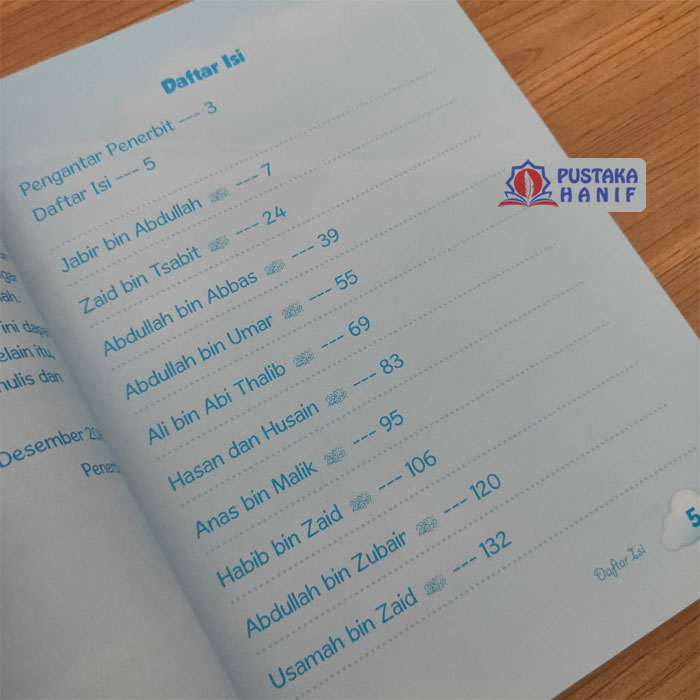 gai
ah.
ini dapa
elain itu,
nulis dan
Desember 20
Penerb
Daftar Isi
Pengantar Penerbit --- 3
Daftar Isi --- 5
Jabir bin Abdullah --- 7
Zaid bin Tsabit --- 24
Abdullah bin Abbas --- 39
Abdullah bin Umar --- 55
Ali bin Abi Thalib --- 69
Hasan dan Husain --- 83
Anas bin Malik --- 95
Habib bin Zaid --- 106
Abdullah bin Zubair --- 120
Usamah bin Zaid --- 132
Daftar Isi
5
PUSTAKA
HANIF